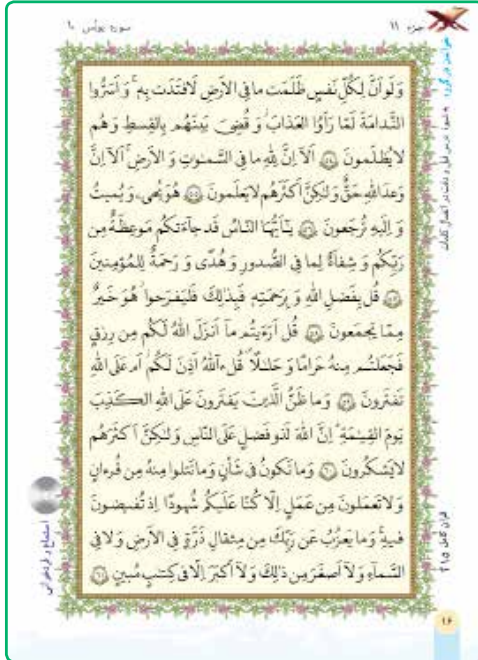 جزء ۱۱
سوره یونس ۱۰
وَ لَوْ اَنَّ لِكُلِّ نَفْسٍ ظَلَمَت ما فِی الاَرضِ لَافتَدَت بِه وَ اَسَرُّوا
النَّدامَةَ لَمّا رَاَوُا العَذابَ وَ قُضِیَ بَینَهُم بِالقِسطِ وَ هُم
لا یُظلَمونَ ۵۴ اَلا اِنَّ لِلّٰهِ ما فِی السَّمٰوٰتِ وَ الاَرضِ اَلا اِنَّ
وَعدَ اللّٰهِ حَقٌّ وَ لٰكِنَّ اَكثَرَهُم لا یَعلَمونَ ۵۵ هُوَ یُحیی وَ یُمیتُ
وَ اِلَیهِ تُرجَعونَ ۵۶ یٰاَیُّهَا النّاسُ قَد جاءَتكُم مَوعِظَةٌ مِن
رَبِّكُم وَ شِفاءٌ لِما فِی الصُّدورِ وَ هُدًی وَ رَحمَةٌ لِلمُؤمِنینَ
۵۷ قُل بِفَضلِ اللّٰهِ وَ بِرَحمَتِه فَبِذٰلِكَ فَلیَفرَحوا هُوَ خَیرٌ
مِمّا یَجمَعونَ ۵۸ قُل اَرَءَیتُم ما اَنزَلَ اللّٰهُ لَكُم مِن رِزقٍ
فَجَعَلتُم مِنهُ حَرامًا وَ حَلٰلًا قُل ءاللّٰهُ اَذِنَ لَكُم اَم عَلَی اللّٰهِ
تَفتَرونَ ۵۹ وَ ما ظَنُّ الَّذینَ یَفتَرونَ عَلَی اللّٰهِ الكَذِبَ
یَومَ القِیٰمَةِ اِنَّ اللّٰهَ لَذو فَضلٍ عَلَی النّاسِ وَ لٰكِنَّ اَكثَرَهُم
لا یَشكُرونَ ۶۰ وَ ما تَكونُ فی شَأنٍ وَ ما تَتلوا مِنهُ مِن قُرءانٍ
وَ لا تَعمَلونَ مِن عَمَلٍ اِلّا كُنّا عَلَیكُم شُهودًا اِذ تُفیضونَ
فیهِ وَ ما یَعزُبُ عَن رَبِّكَ مِن مِثقالِ ذَرَّةٍ فِی الاَرضِ وَ لا فِی
السَّماءِ وَ لا اَصغَرَ مِن ذٰلِكَ وَ لا اَكبَرَ اِلّا فی كِتٰبٍ مُبینٍ ۶۱
استماع و فردخوانی
قرآن کامل ۲۱۵
۱۶